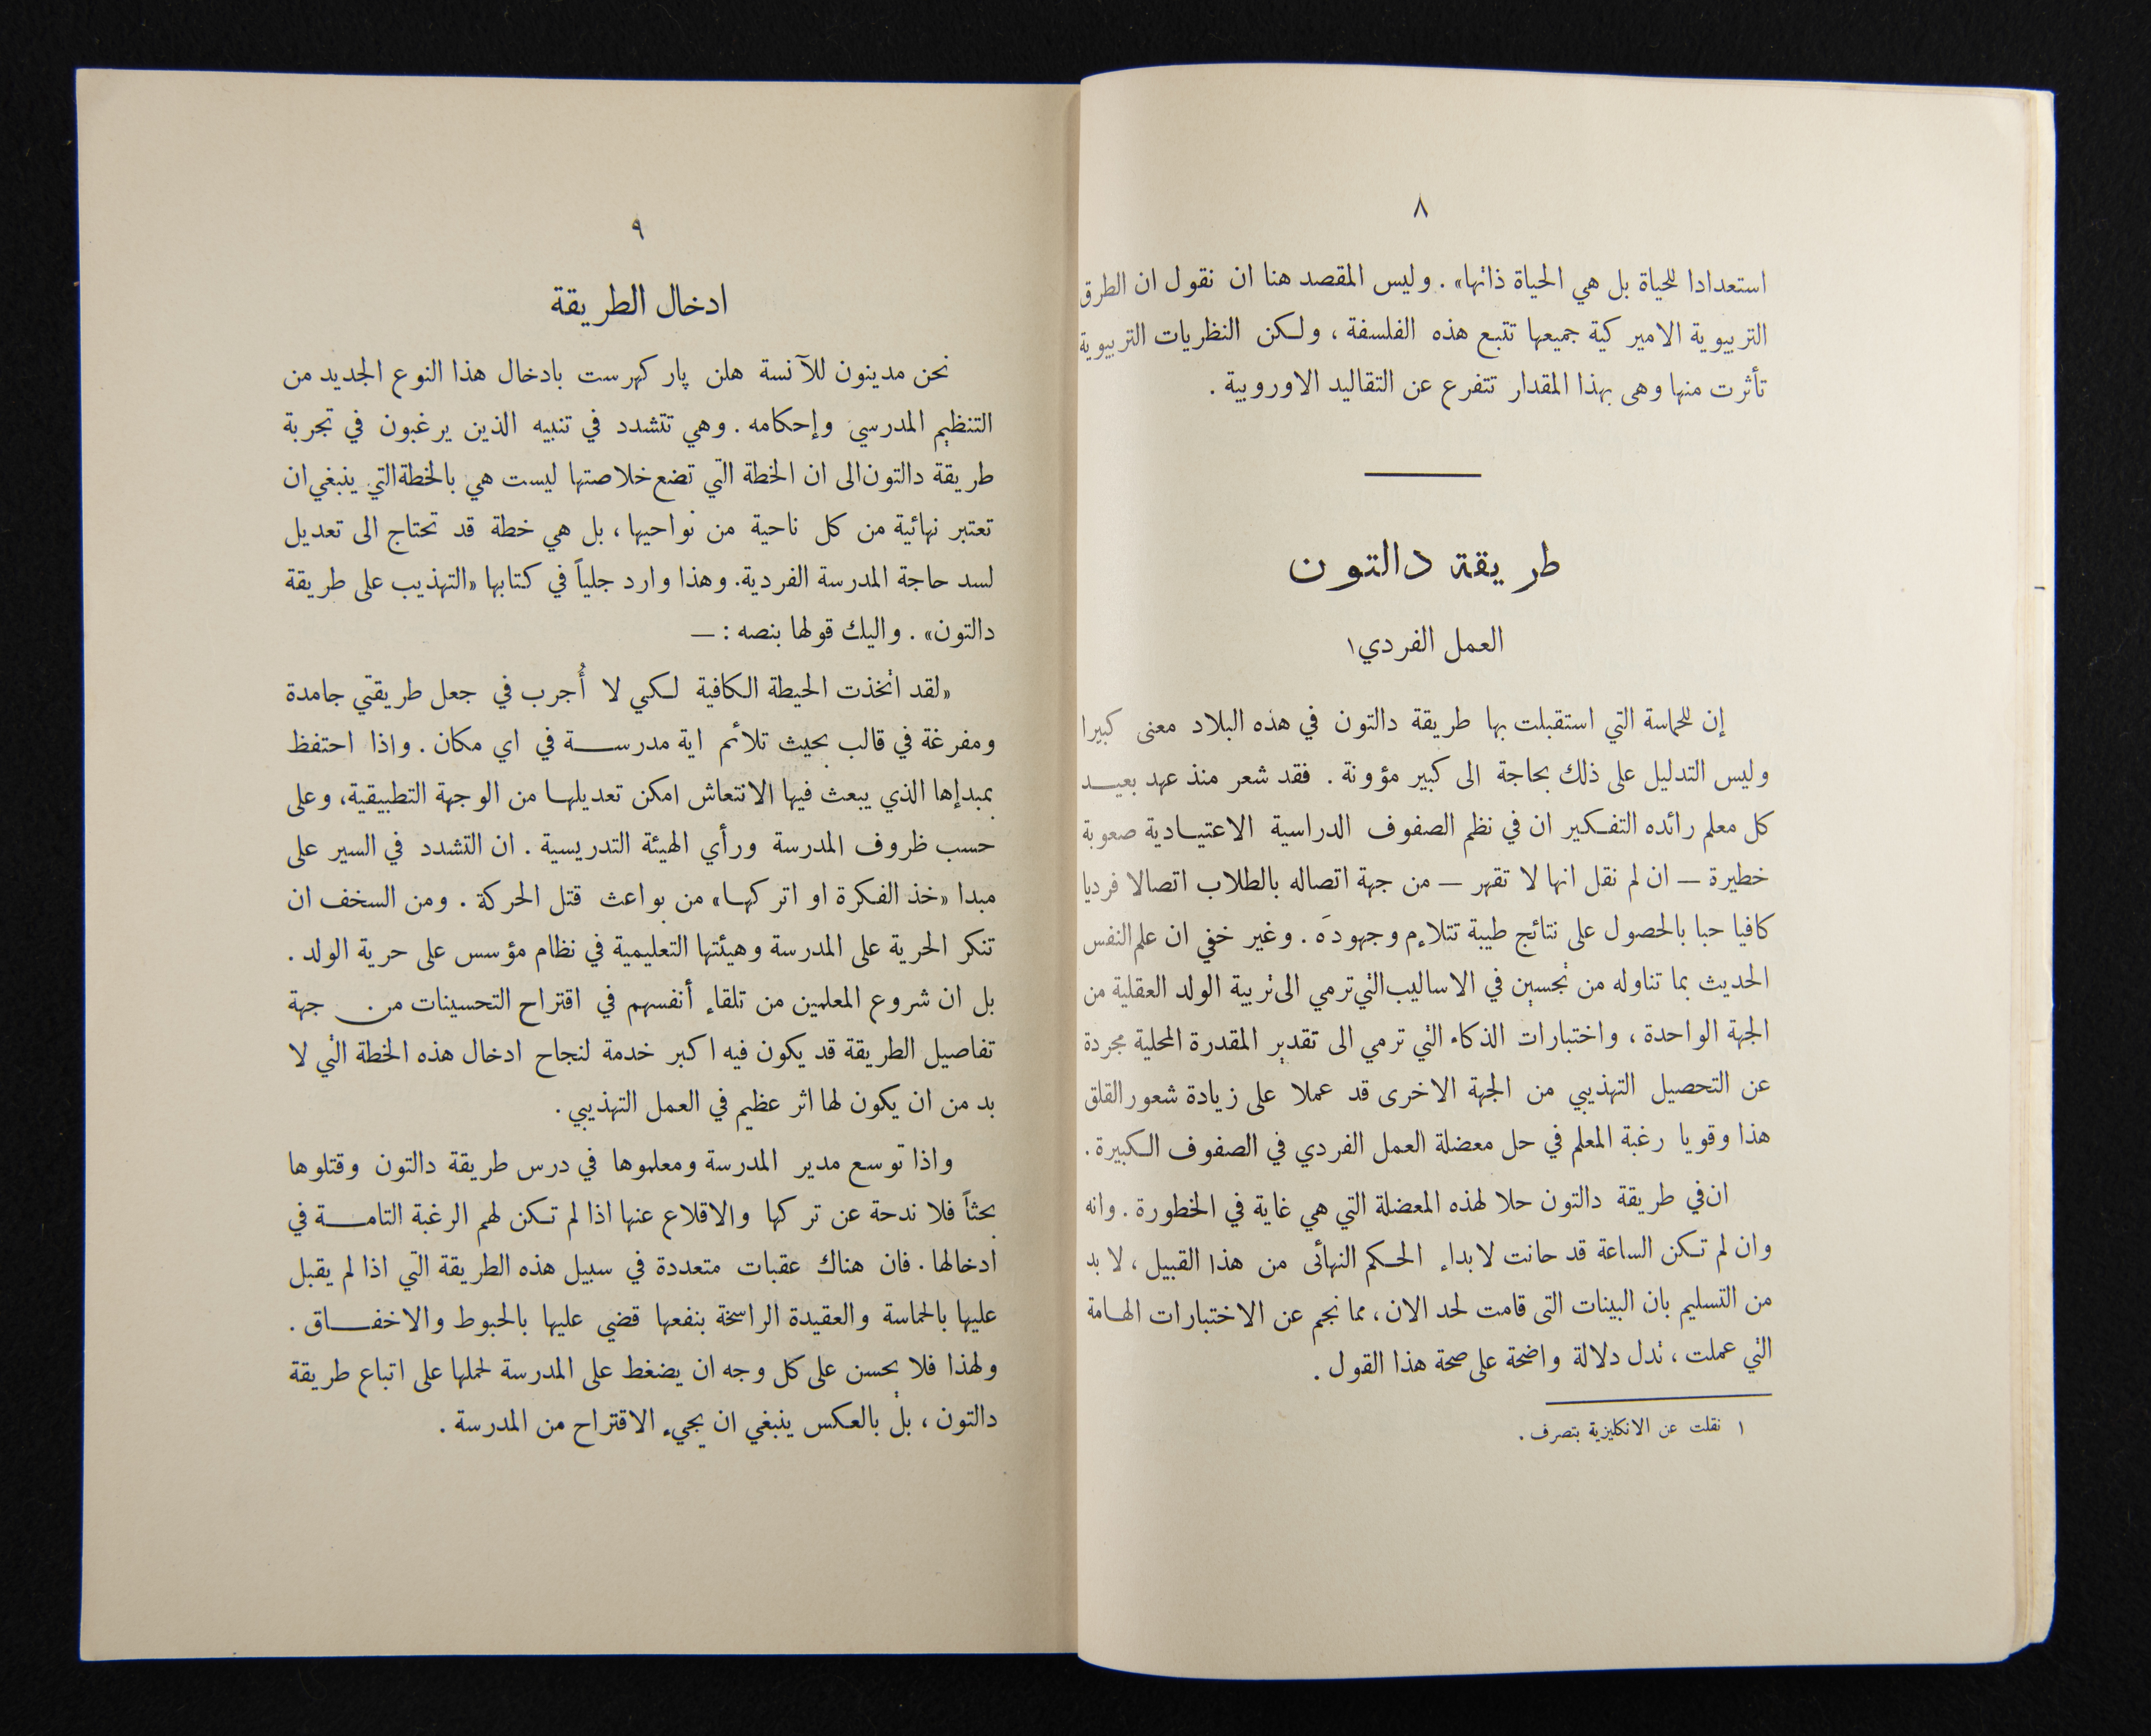 ٨
استعدادا للحياة بل هي الحياة ذاتها» . وليس المقصد هنا ان نقول ان الطرق
التربيوية الاميركية جميعها تتبع هذه الفلسفة ، ولكن النظريات التربيوية
تأثرت منها وهى بهذا المقدار تتفرع عن التقاليد الاوروبية .
طريقة دالتون
العمل الفردي١
إن للحماسة التي استقبلت بها طريقة دالتون في هذه البلاد معنى كبيرا
وليس التدليل على ذلك بحاجة الى كبير مؤونة . فقد شعر منذ عهد بعيد
كل معلم رائده التفكير ان في نظم الصفوف الدراسية الاعتيادية صعوبة
خطيرة — ان لم نقل انها لا تقهر — من جهة اتصاله بالطلاب اتصالا فرديا
كافيا حبا بالحصول على نتائج طيبة تتلاءم وجهودَه . وغير خفي ان علم النفس
الحديث بما تناوله من تحسين في الاساليب التي ترمي الى تربية الولد العقلية من
الجهة الواحدة ، واختبارات الذكاء التي ترمي الى تقدير المقدرة المحلية مجردة
عن التحصيل التهذيبي من الجهة الاخرى قد عملا على زيادة شعور القلق
هذا وقويا رغبة المعلم في حل معضلة العمل الفردي في الصفوف الكبيرة .
ان في طريقة دالتون حلا لهذه المعضلة التي هي غاية في الخطورة . وانه
وان لم تكن الساعة قد حانت لابداء الحكم النهائى من هذا القبيل ، لا بد
من التسليم بان البينات التى قامت لحد الان ، مما نجم عن الاختبارات الهامة
التي عملت ، تدل دلالة واضحة على صحة هذا القول .
١ نقلت عن الانكليزية بتصرف .
٩
ادخال الطريقة
نحن مدينون للآنسة هلن پاركهرست بادخال هذا النوع الجديد من
التنظيم المدرسي وإحكامه . وهي تتشدد في تنبيه الذين يرغبون في تجربة
طريقة دالتون الى ان الخطة التي تضع خلاصتها ليست هي بالخطة التي ينبغي ان
تعتبر نهائية من كل ناحية من نواحيها ، بل هي خطة قد تحتاج الى تعديل
لسد حاجة المدرسة الفردية. وهذا وارد جلياً في كتابها «التهذيب على طريقة
دالتون» . واليك قولها بنصه : —
«لقد اتخذت الحيطة الكافية لكي لا أُجرب في جعل طريقتي جامدة
ومفرغة في قالب بحيث تلائم اية مدرسة في اي مكان . واذا احتفظ
بمبدإها الذي يبعث فيها الانتعاش امكن تعديلها من الوجهة التطبيقية، وعلى
حسب ظروف المدرسة ورأي الهيئة التدريسية . ان التشدد في السير على
مبدا «خذ الفكرة او اتركها» من بواعث قتل الحركة . ومن السخف ان
تنكر الحرية على المدرسة وهيئتها التعليمية في نظام مؤسس على حرية الولد .
بل ان شروع المعلمين من تلقاء أنفسهم في اقتراح التحسينات من جهة
تفاصيل الطريقة قد يكون فيه اكبر خدمة لنجاح ادخال هذه الخطة التي لا
بد من ان يكون لها اثر عظيم في العمل التهذيبي .
واذا توسع مدير المدرسة ومعلموها في درس طريقة دالتون وقتلوها
بحثاً فلا ندحة عن تركها والاقلاع عنها اذا لم تكن لهم الرغبة التامة في
ادخالها . فان هناك عقبات متعددة في سبيل هذه الطريقة التي اذا لم يقبل
عليها بالحماسة والعقيدة الراسخة بنفعها قضي عليها بالحبوط والاخفاق .
ولهذا فلا يحسن على كل وجه ان يضغط على المدرسة لحملها على اتباع طريقة
دالتون ، بل بالعكس ينبغي ان يجيء الاقتراح من المدرسة .